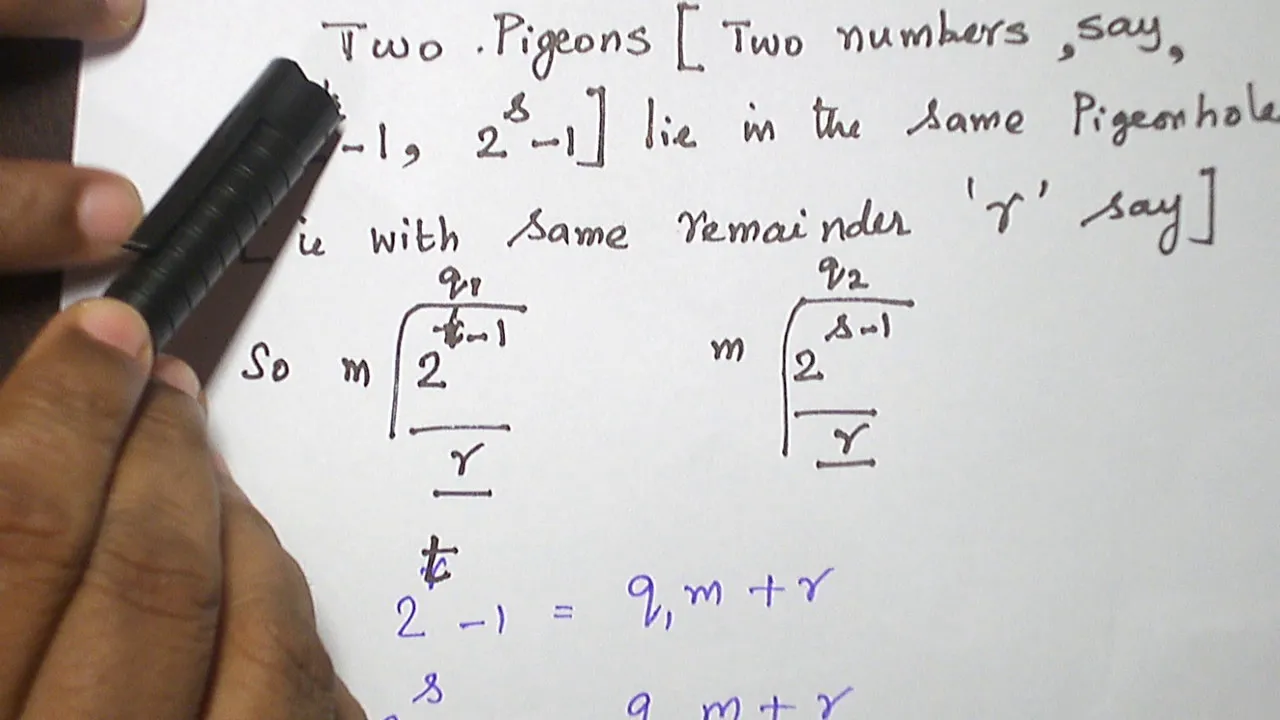 Two . Pigeons [ Two numbers , say,
-1, 2^s -1] lie in the same Pigeonhole
ie with same remainder 'r' say ]
q1 q2
So m 2^t-1 m 2^s-1
r r
2^t -1 = q1 m + r
s q m + r